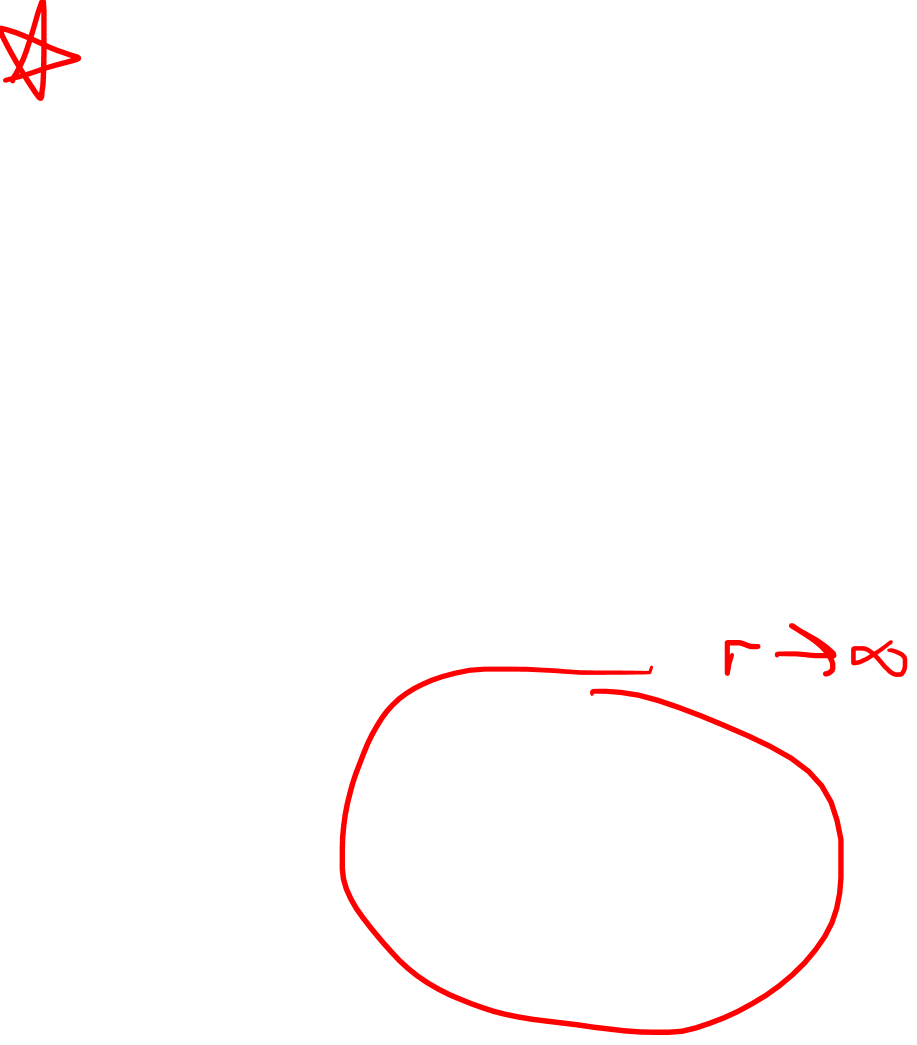 r → ∞